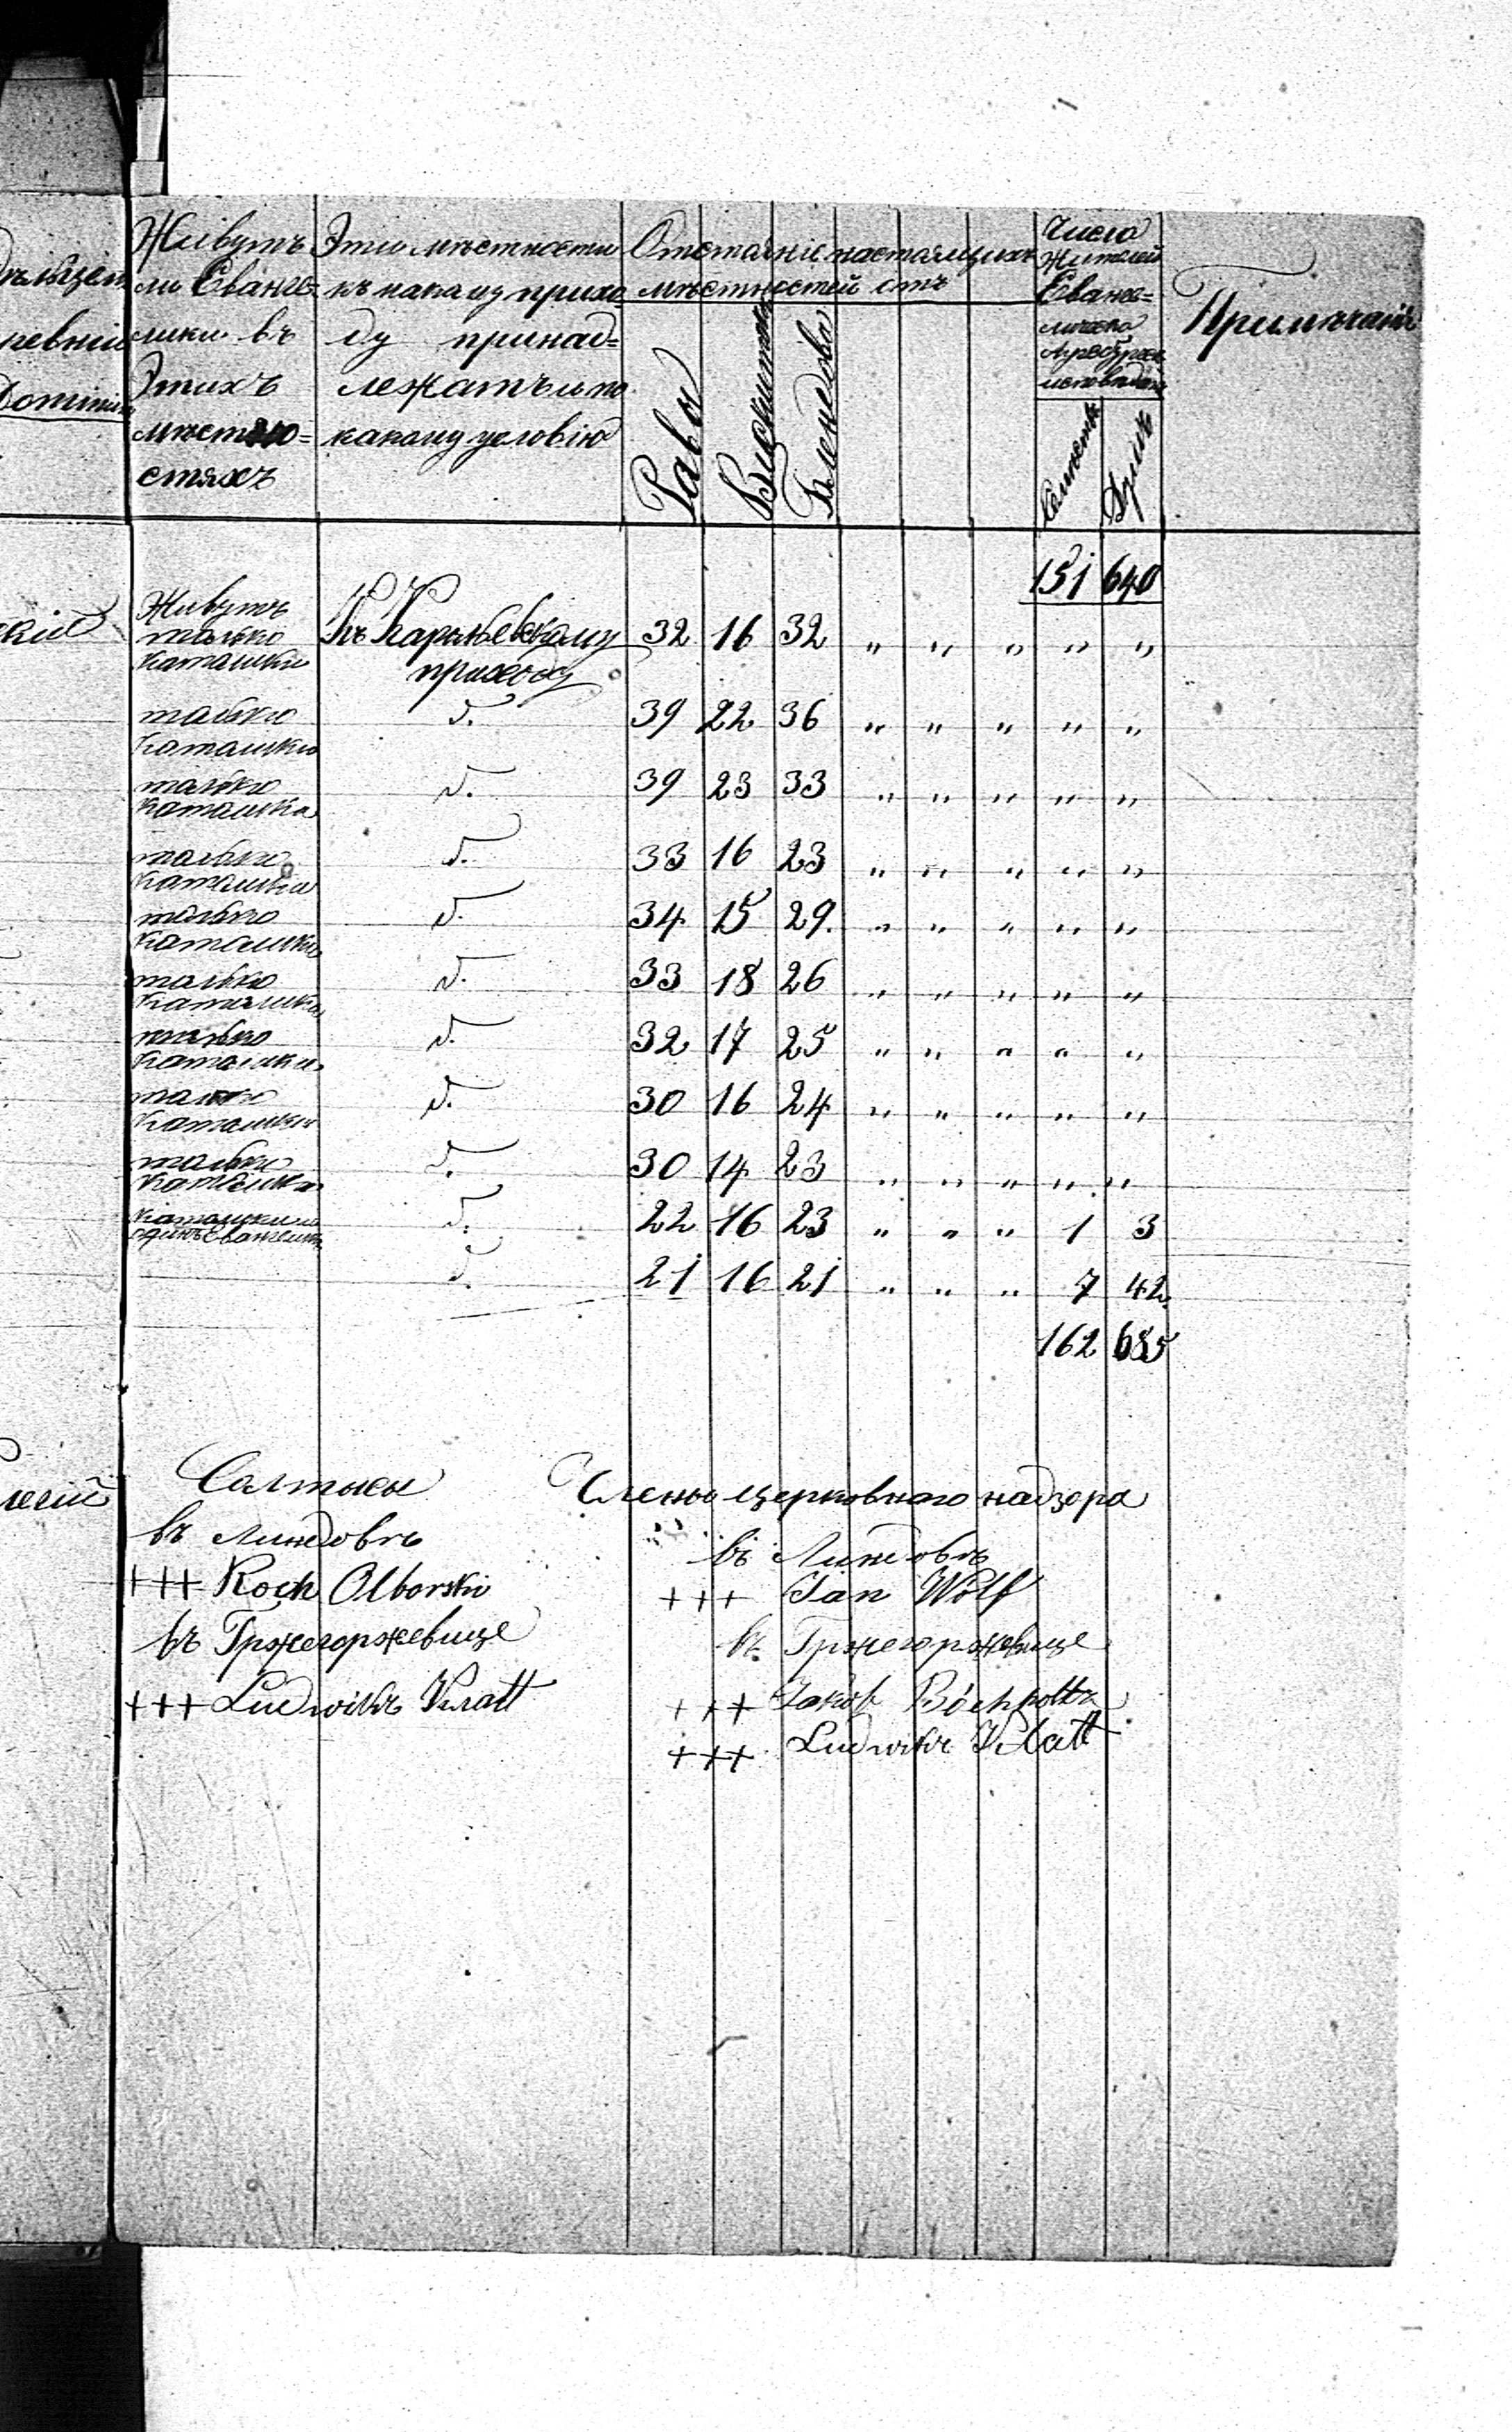 Живутъ
ли Еванге-
лики въ
Этихъ
мѣстно=
стяхъ
Эти мѣстности
къ какому прихо
ду принад=
лежатъ и по
какому условію
Отстаяніе настоящихъ
мѣстностей отъ
Рава
Вискитки
Число
Жителей
Еванге=
Семействъ
Душъ
Примѣчанія
151 640
Живутъ
только
католики
Къ
приходу
32 16 32 " " " " "
только
католики
d. 39 22 36 " " " " "
только
католики
d. 39 23 33 " " " " "
только
католики
d. 33 16 23 " " " " "
только
католики
d. 34 15 29. " " " " "
только
католики
d. 33 18 26 " " " " "
только
католики
d. 32 17 25 " " " " "
только
католики
d. 30 16 24 " " " " "
только
католики
d. 30 14 23 " " " " "
католики и
одинъ Евангеликъ
d. 22 16 23 " " " 1 3
d. 21 16 21 " " " 7 42
162 685
Солтысы
въ Линдовѣ
+++ Roch Olborski
въ Гржегоржевице
+++ Ludwikъ Klatt
Члены церковнаго надзора
въ Линдовѣ
+++ Jan Wolf
въ Гржегоржевице
+++ Jakob
+++ Ludwikъ Klatt